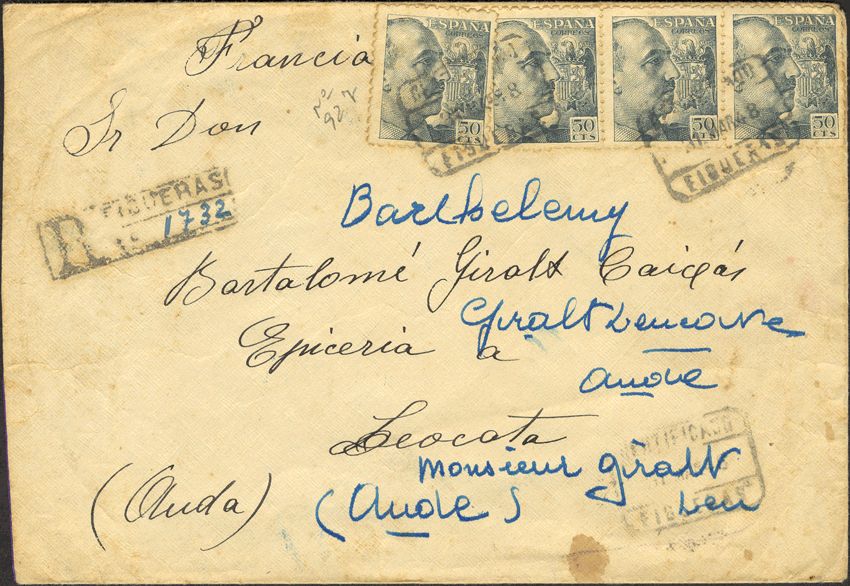 Francia
ESPAÑA
CORREOS
50
CTS
ESPAÑA
CORREOS
50
CTS
ESPAÑA
CORREOS
50
CTS
ESPAÑA
CORREOS
50
CTS
FIGUERAS
MAR 48
FIGUERAS
Sr Don
R FIGUERAS
1732
Barthelemy
Bartalomé Giralt Caigás
Giralt Leucate
Epiceria a
Aude
Leocata
CERTIFICADO
FIGUERAS
monsieur Giralt
(Auda) (Aude)